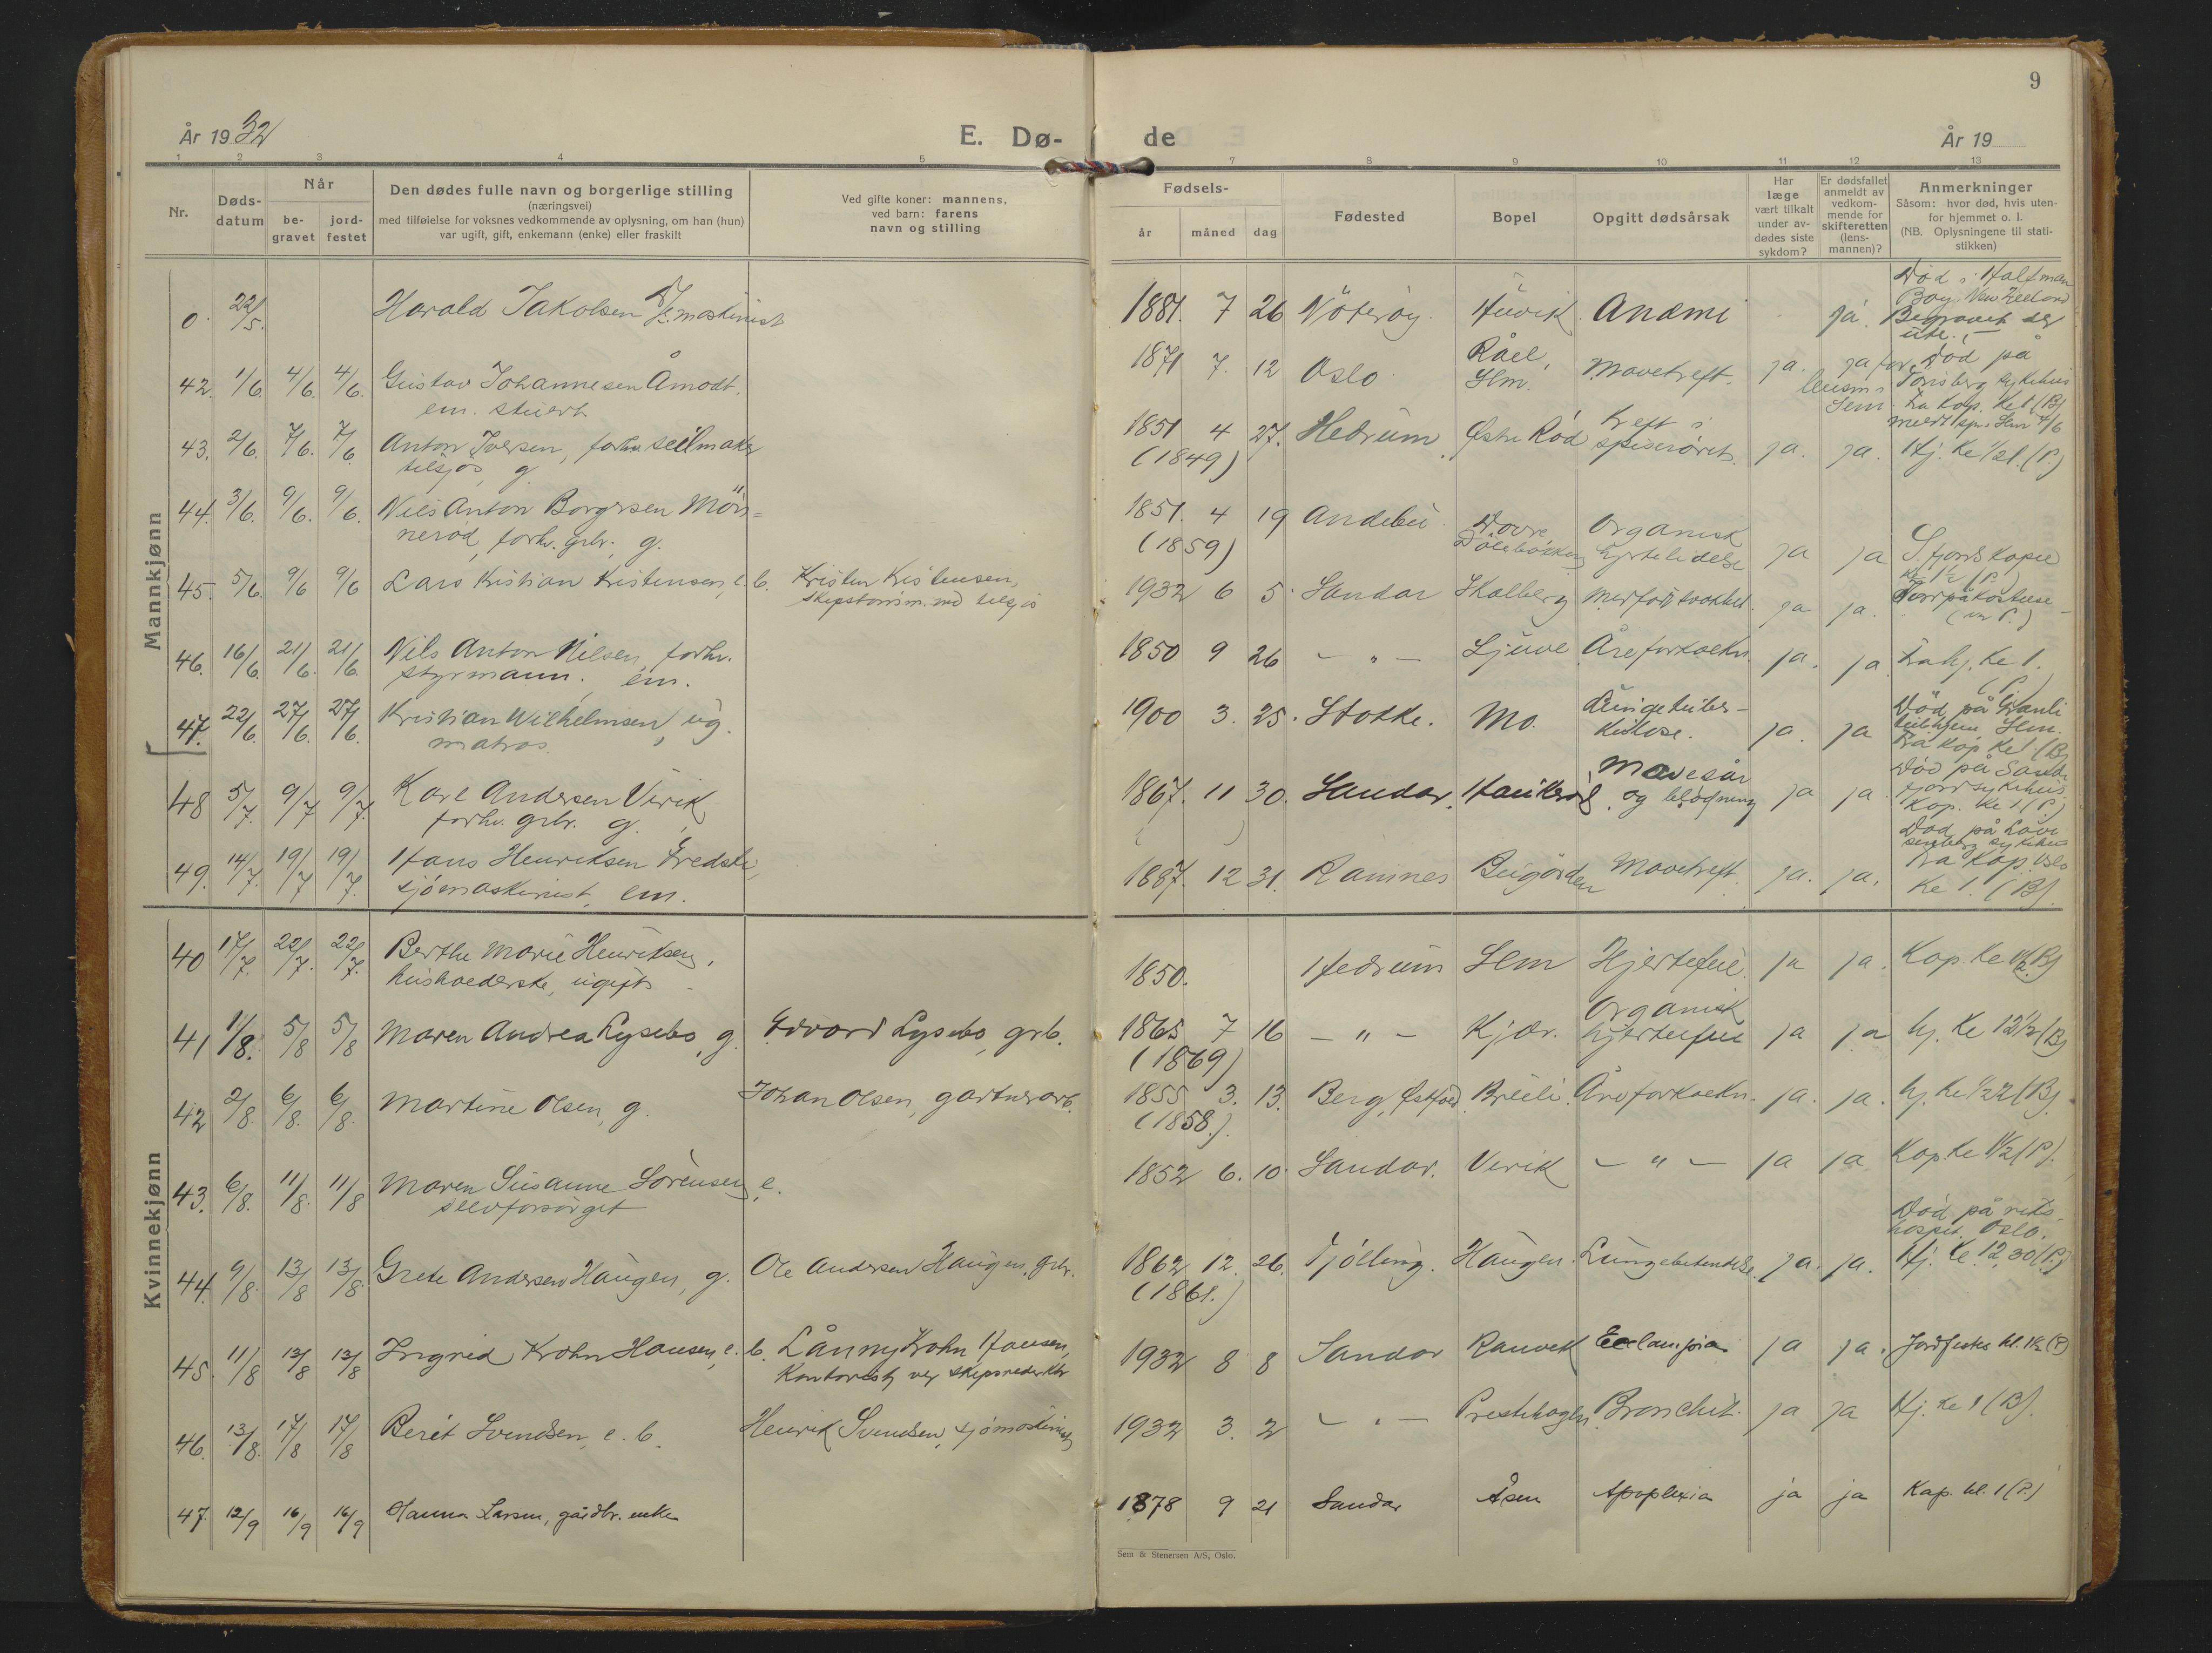 9
År 1932
E. Dø-
de
År 19
1 2 3 4 5 7 8 9 10 11 12 13
Nr.
Døds-
datum
Når
be-
gravet
jord-
festet
Den dødes fulle navn og borgerlige stilling
(næringsvei)
med tilføielse for voksnes vedkommende av oplysning, om han (hun)
var ugift, gift, enkemann (enke) eller fraskilt
Ved gifte koner: mannens,
ved barn: farens
navn og stilling
Fødsels-
år måned dag
Fødested
Bopel
Opgitt dødsårsak
Har
læge
vært tilkalt
under av-
dødes siste
sykdom?
Er dødsfallet
anmeldt av
vedkom-
mende for
skifteretten
(lens-
mannen)?
Anmerkninger
Såsom: hvor død, hvis uten-
for hjemmet o. l.
(NB. Oplysningene til stati-
stikken)
Mannkjønn
0 22/5. Harald Jakobsen maskinist
1881. 7 26 Nöteröy Huvik Anæmi ja.
Død i Halfman
Bay New Zeeland
Begravet der
ute.
42. 1/6. 4/6. 4/6. Gustav Johannesen Åmodt,
em. stuert
1871 7. 12 Oslo Råel, Sem. Mavekreft. ja. ja for
lensm i
Sem
Død på
Tønsberg sykehus
fra kap. kl 1 (B)
43. 2/6. 7/6. 7/6. Anton Iversen, forhv. seilmaker
tilsjøs, g.
1851 4 27. Hedrum Østre Rød Kreft i
(1849) spiserøret. ja. ja. Hj. kl 1/2 1. (P.)
44. 3/6. 9/6. 9/6. Nils Anton Borgersen Møn-
nerød, forhv. grbr., g.
1851. 4 19 Andebu Dovre Organisk
(1859) hjertelidelse ja ja
45. 5/6. 9/6 9/6 Lars Kristian Kristensen, e. b. Kristen Kristensen,
tilsjøs
1932 6 5 Sandar Skolberg Medfødt ja ja.
Jordpåkastelse
(ved P.)
46. 16/6. 21/6. 21/6. Nils Anton Nilsen, forhv.
styrmann. em.
1850 9 26 - " - Ljuve Åreforkalkn. ja. ja fra hj. kl 1.
(P.)
47. 22/6. 27/6. 27/6. Kristian Wilhelmsen, ug.
matros.
1900 3. 25. Stokke. Mo. Lungetuber-
kulose. ja. ja
Død på Granli
tub.hjem, Sem.
fra kap kl 1 (B)
48 5/7. 9/7 9/7. Karl Andersen Virik
forhv. grbr. g.
1867. 11 30. Sandar. Haukerød Mavesår
og blødning ja ja
Død på Sande-
fjord sykehus.
Kap. kl 1 (P.)
49. 14/7. 19/7 19/7. Hans Henriksen Fredski,
sjømaskinist, em.
1887. 12 31. Ramnes Bugården Mavekreft. ja. ja.
Død på Lovi-
senberg sykehus
fra Kap. Oslo
kl 1. (B).
Kvinnekjønn
40 17/7. 22/7. 22/7. Berthe Marie Henriksen,
husholderske, ugift
1850. Hedrum Sem Hjertefeil. ja ja. Kap. kl (B)
41 1/8. 5/8 5/8 Maren Andrea Lysebo, g. Edvard Lysebo, grb.
1865 7 16 - " - Kjær. Organisk
(1869) hjertefeil ja ja hj. kl 12 1/2 (B)
42 2/8. 6/8. 6/8. Martine Olsen, g. Johan Olsen, gartnerarb.
1855 3. 13. Berg, Østfold. Breili. Åreforkalkn. ja. ja. hj. kl 1/2 2 (B).
(1858.)
43. 6/8. 11/8. 11/8 Maren Susanne Sørensen, e.
selvforsørget
1852 6. 10. Sandar. Virik - " - ja ja Kap. kl 1 1/2 (P).
44. 9/8. 13/8 13/8. Grete Andersen Haugen, g. Ole Andersen Haugen, grbr.
1862 12. 26. Tjølling. Haugen. Lungebetendelse. ja. ja.
(1861.)
Død på riks-
hospit. Oslo.
Hj. kl. 12,30 (P.)
45. 11/8 13/8 13/8 Ingrid Krohn Hansen, e. b. Krohn Hansen,
Kontorist ved skipsrederktr
1932 8 8 Sandar Ranvek Eclampsia ja ja. Jordfestes kl. 1 1/2 (P)
46. 13/8. 17/8 17/8 Berit Svendsen, e. b. Henrik Svendsen, sjømaskinist
1932 3. 2 - " - Prestehagen Bronchit. ja ja Hj. kl 1 (B).
47. 12/9 16/9 16/9 Hanna Larsen, gårdbr. enke
1878 9 21 Sandar Åsen Apoplexia ja ja Kap. kl. 1 (P.)
Sem & Stenersen A/S, Oslo.